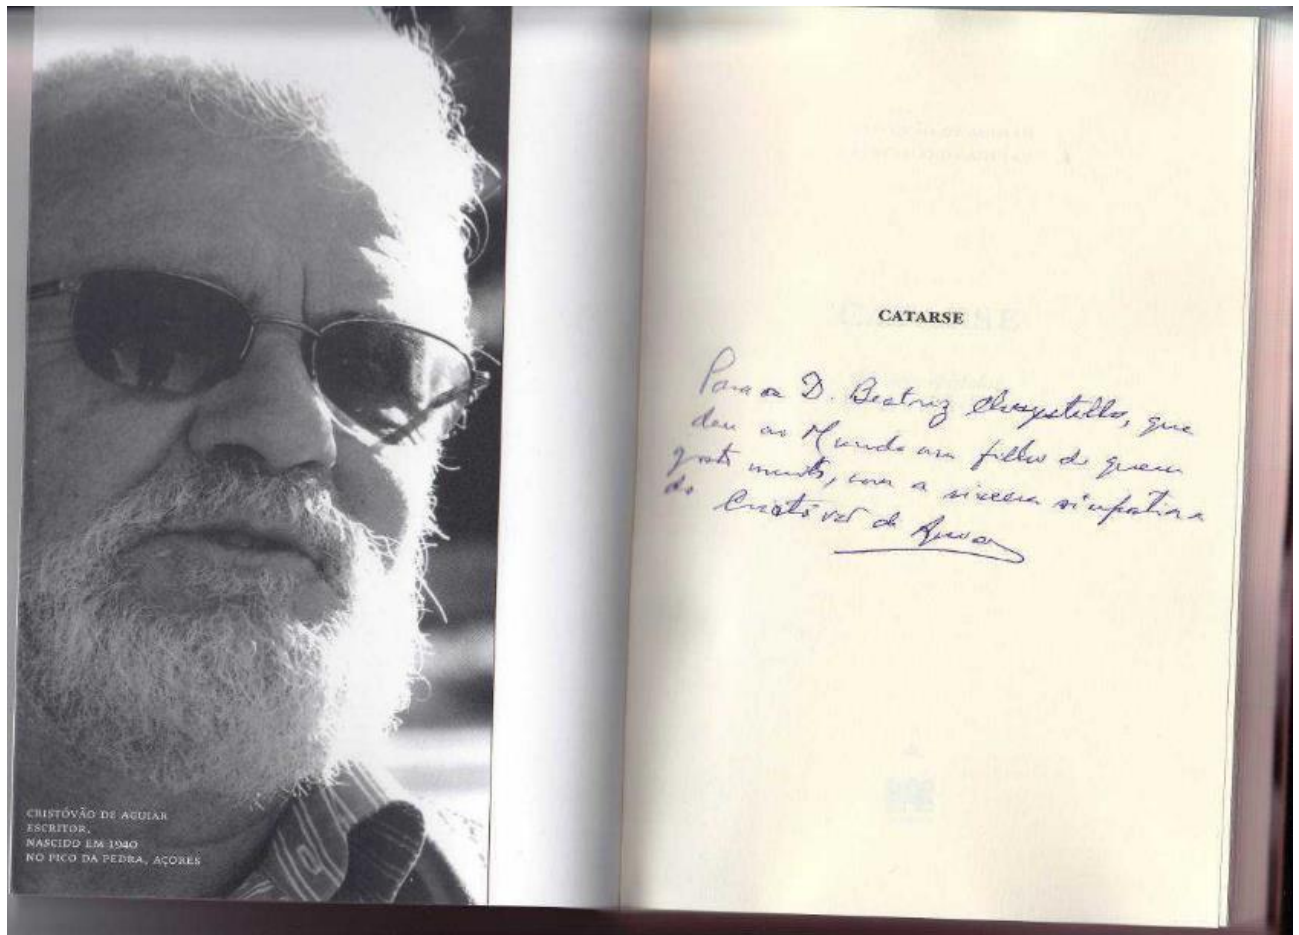 CRISTÓVÃO DE AGUIAR
ESCRITOR,
NASCIDO EM 1940
NO PICO DA PEDRA, AÇORES
CATARSE
Para a D. Beatriz Chrystello, que
deu ao Mundo um filho de quem
gosto muito, com a sincera simpatia
do Cristóvão de Aguiar